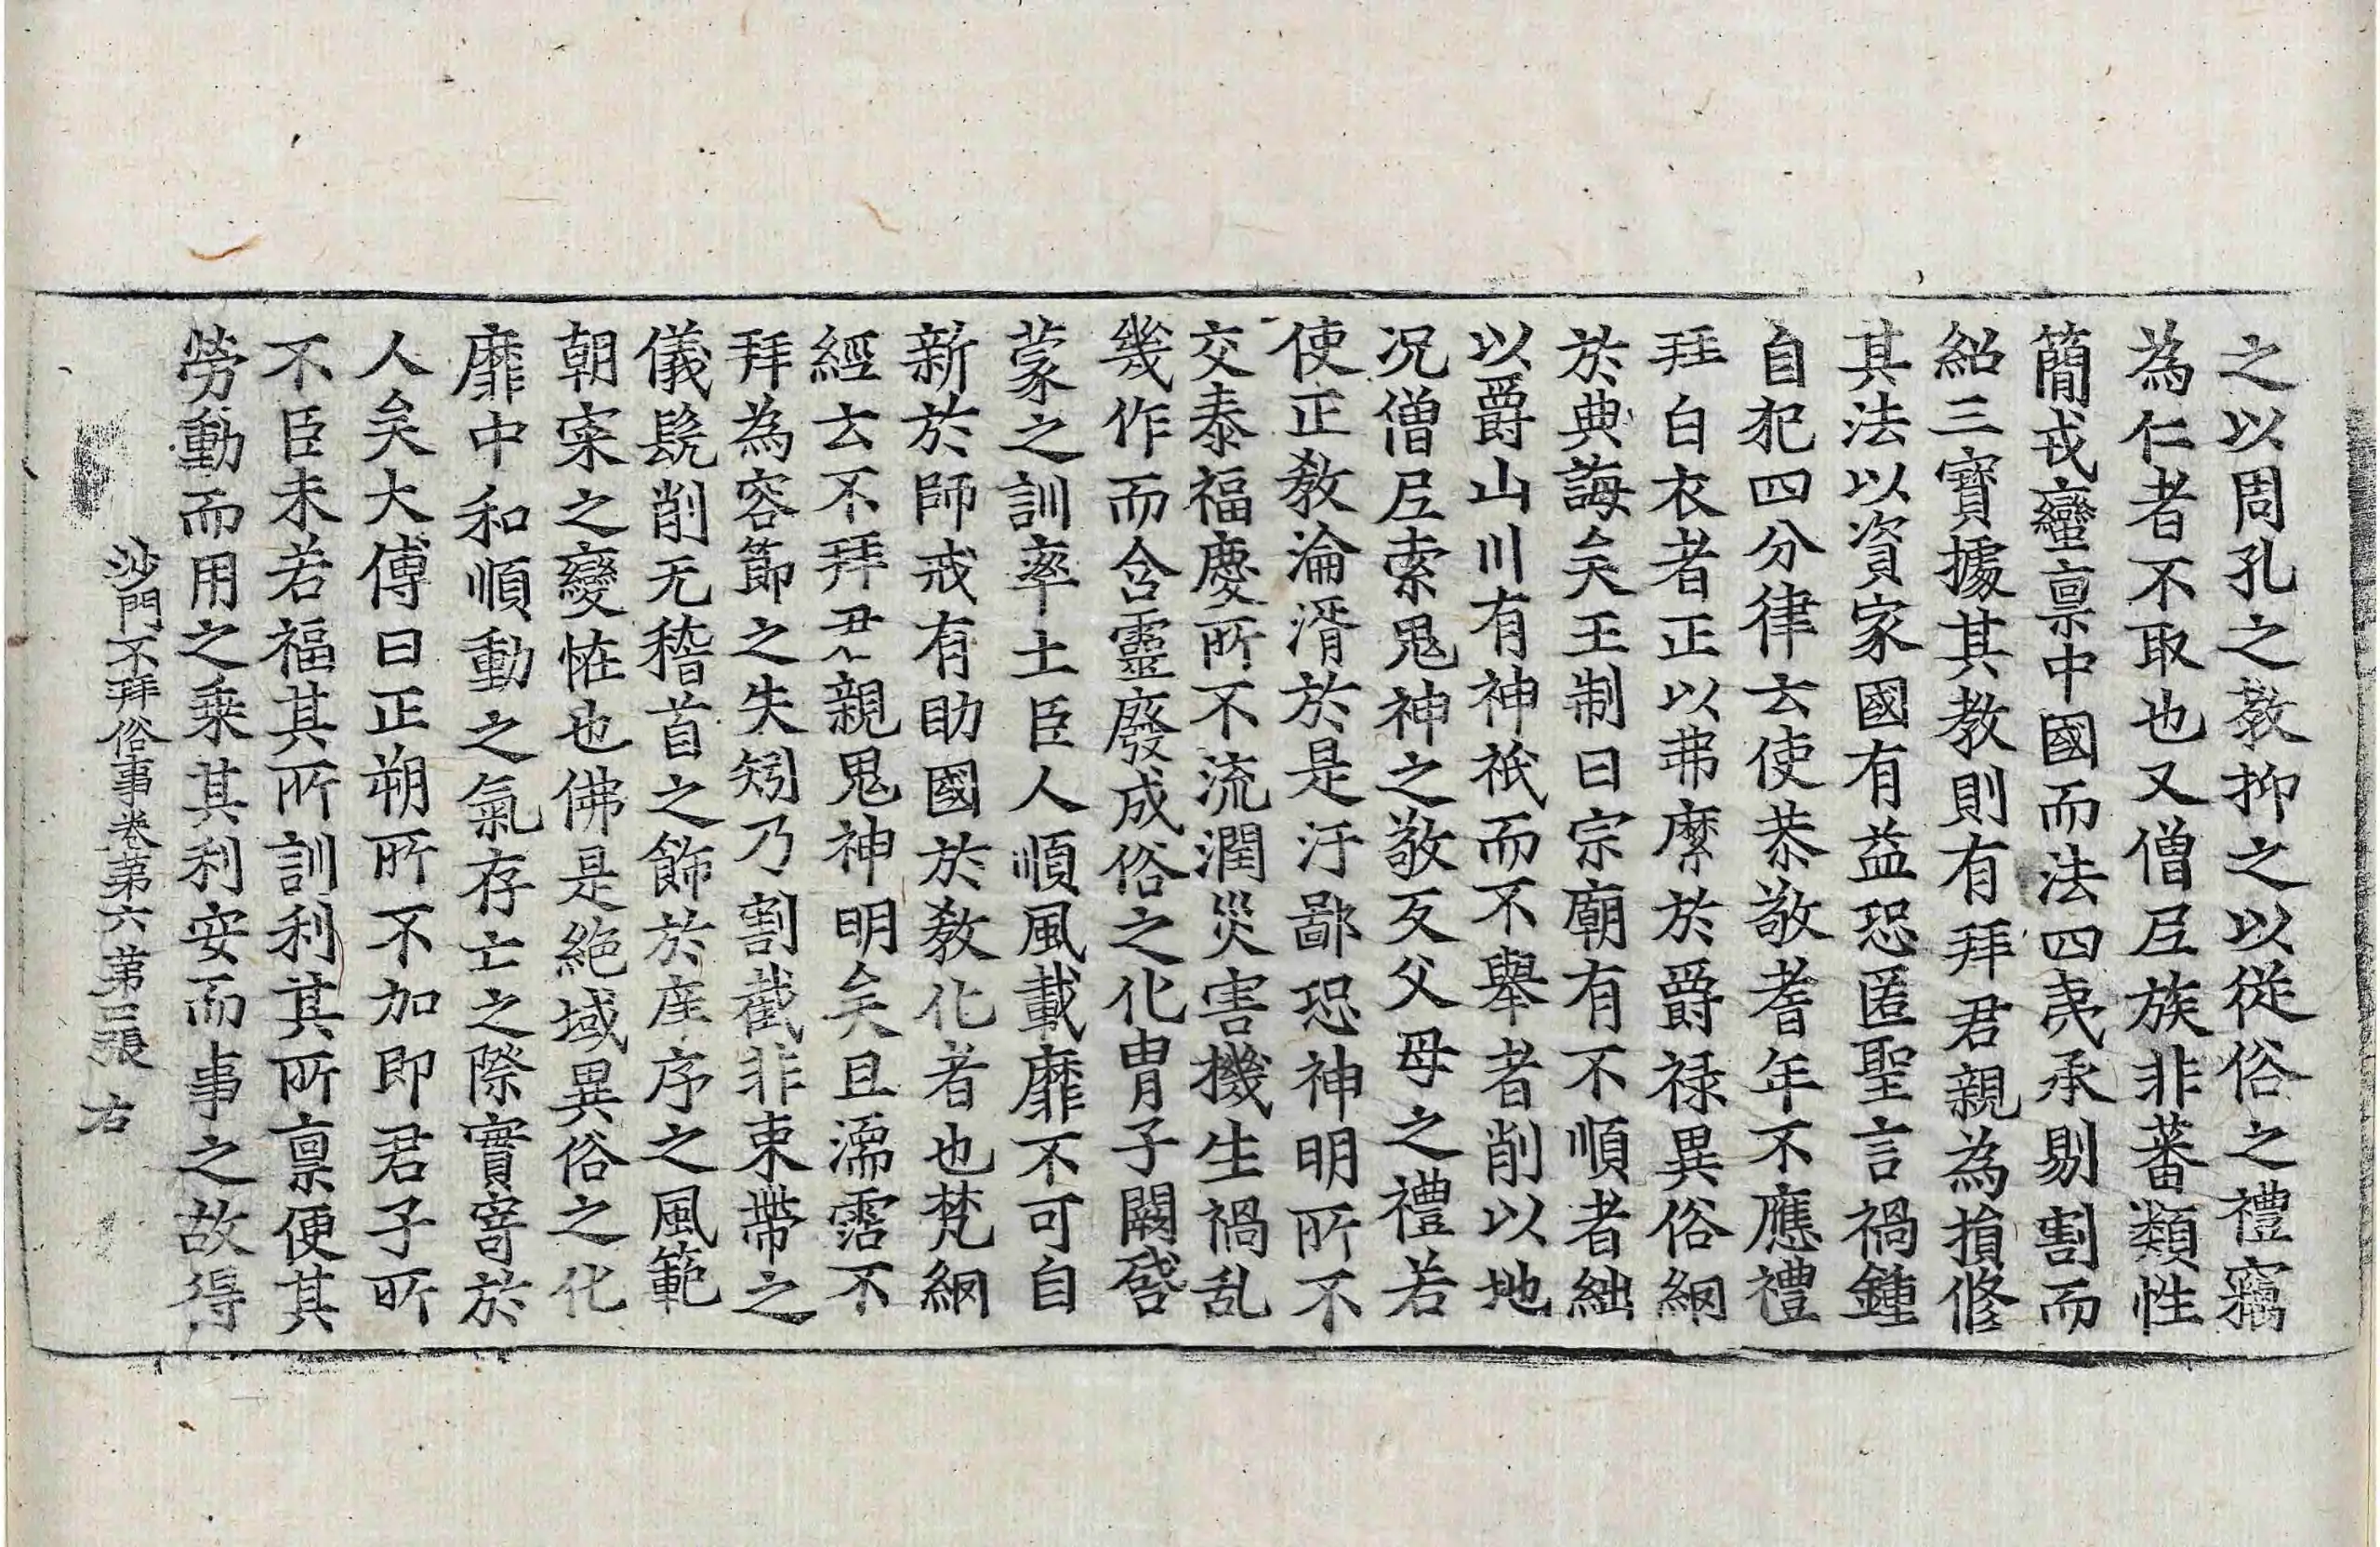 之以周孔之教抑之以從俗之禮竊
為仁者不取也又僧𡰱族非蕃類性
簡戎蠻禀中國而法四夷承剔割而
紹三寶據其教則有拜君親為損修
其法以資家國有益恐匿聖言禍鍾
自犯四分律云使恭敬耆年不應禮
拜白衣者正以弗縻於爵禄異俗網
於典誨矣王制曰宗廟有不順者絀
以爵山川有神祇而不舉者削以地
况僧𡰱索鬼神之敬反父母之禮若
使正教淪湑於是汙鄙恐神明所不
交泰福慶所不流潤災害機生禍乱
幾作而含靈廢成俗之化冑子闕啓
蒙之訓率土臣人順風載靡不可自
新於師戒有助國於教化者也梵網
經云不拜君親鬼神明矣且濡霑不
拜為容節之失矧乃割截非束帶之
儀髡削无稽首之飾於庠序之風範
朝宷之變恠也佛是絶域異俗之化
靡中和順動之氣存亡之際實寄於
人矣大傅曰正朔所不加即君子所
不臣未若福其所訓利其所禀便其
勞動而用之乘其利安而事之故得
沙門不拜俗事卷第六 第三張 右